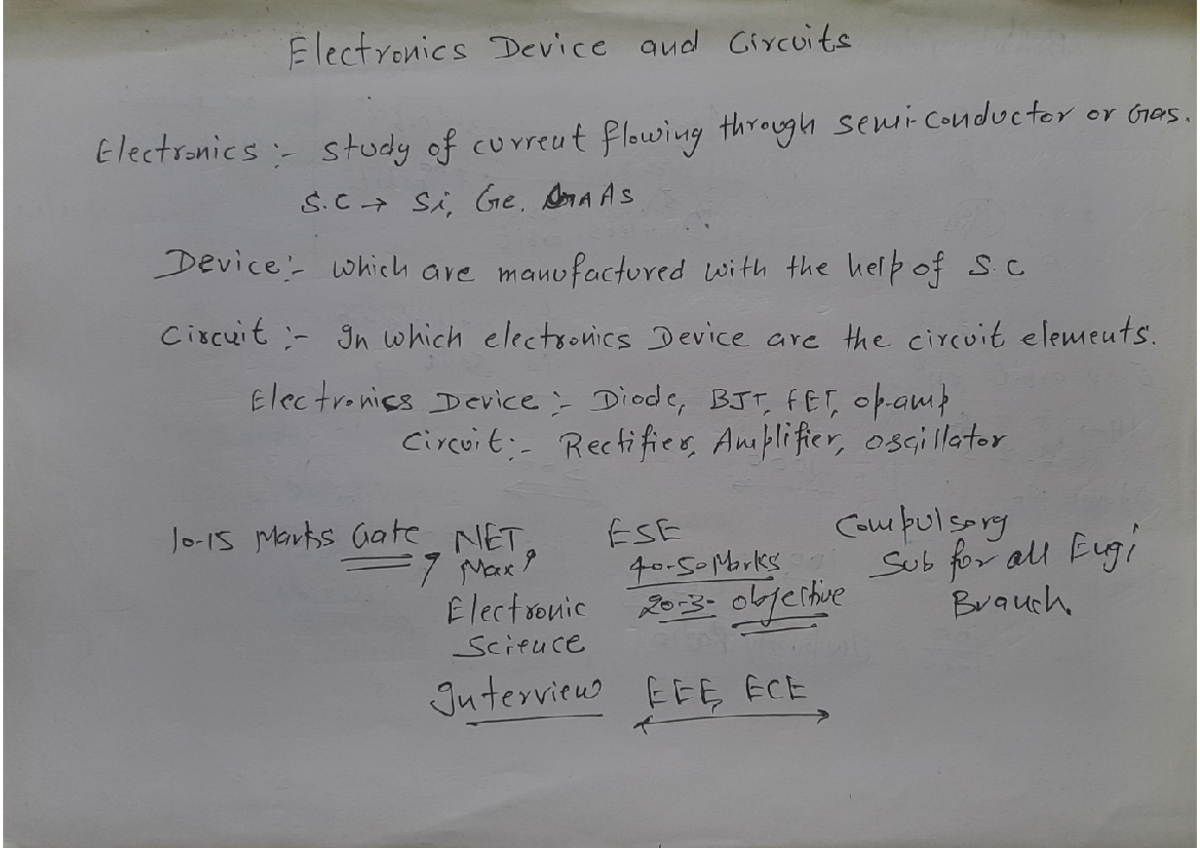 Electronics Device and Circuits
Electronics :- study of current flowing through semi-conductor or Gas.
S.C → Si, Ge, GaAs
Device :- which are manufactured with the help of S.C
Circuit :- In which electronics Device are the circuit elements.
Electronics Device :- Diode, BJT, FET, op-amp
Circuit :- Rectifier, Amplifier, oscillator
10-15 Marks Gate, NET, ESE Compulsory
Max 40-50 Marks Sub for all Engi
Electronic 20-30 objective Branch
Science
Interview EEE, ECE